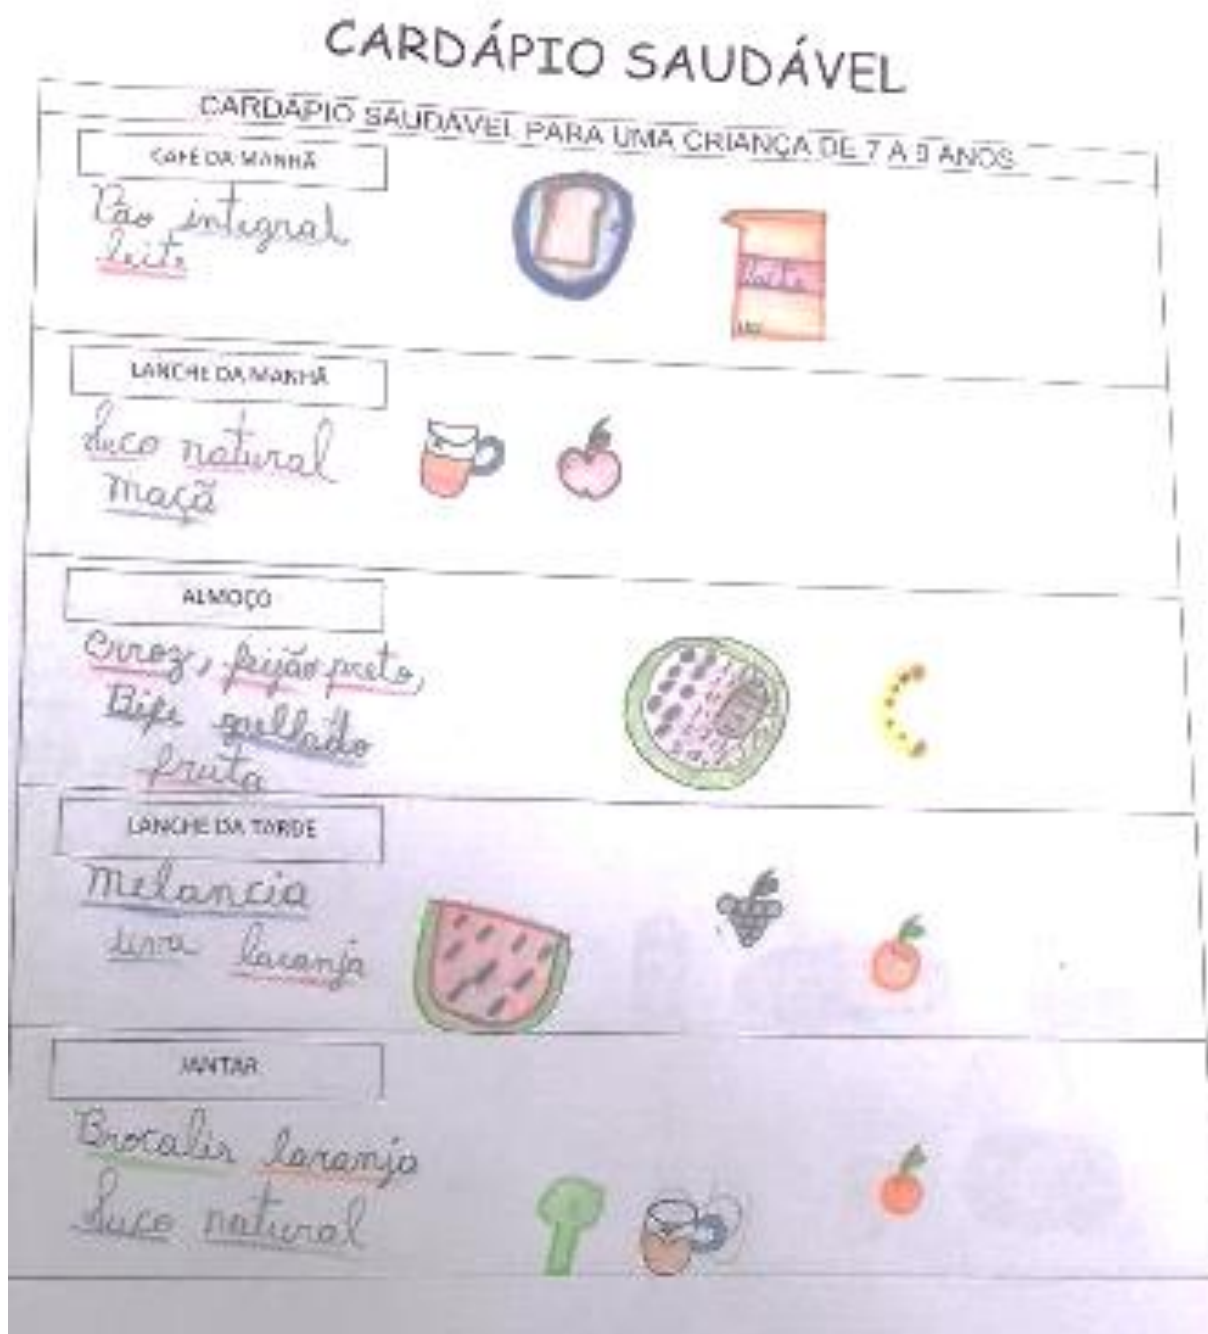 CARDÁPIO SAUDÁVEL
CARDÁPIO SAUDÁVEL PARA UMA CRIANÇA DE 7 A 9 ANOS
CAFÉ DA MANHÃ
Pão integral
leite
leite
LANCHE DA MANHÃ
Suco natural
Maçã
ALMOÇO
Arroz, feijão preto,
Bife
fruta
LANCHE DA TARDE
Melancia
uva laranja
JANTAR
Brocalis laranja
Suco natural